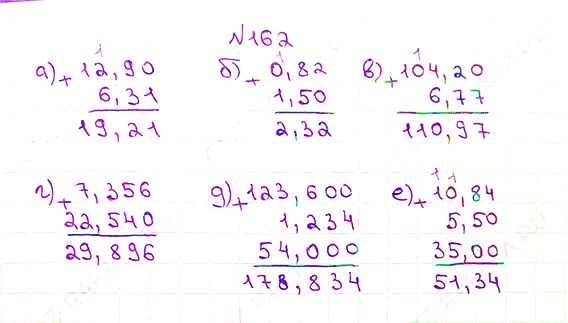 №162
а) + 12,90   б) + 0,82   в) + 104,20
6,31   1,50   6,77
19,21   2,32   110,97
г) + 7,356   д) + 123,600   е) + 10,84
22,540   1,234   5,50
29,896   54,000   35,00
178,834   51,34